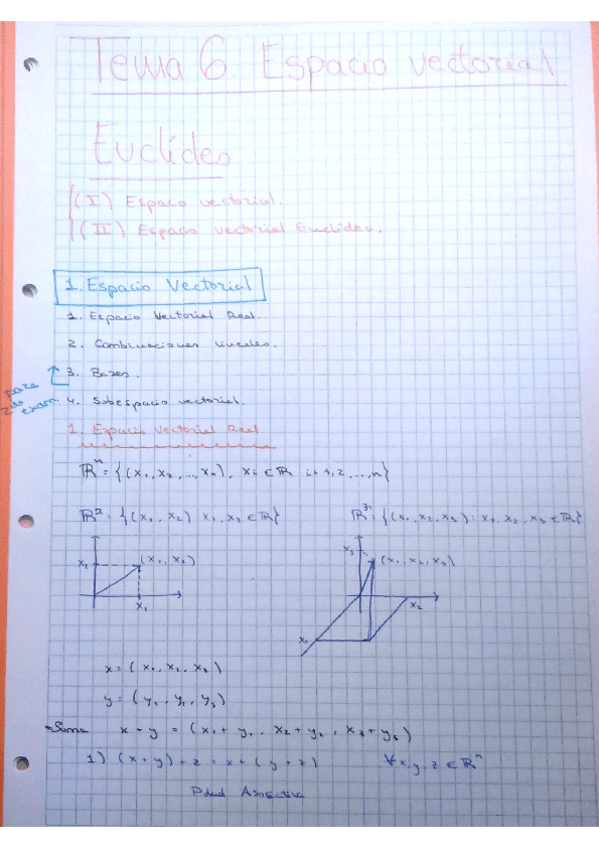 Tema 6. Espacio vectorial
Euclídeo
(I) Espaco vectorial.
(II) Espacio vectorial Euclídeo.
1. Espacio Vectorial
1. Espacio Vectorial Real.
2. Combinaciones lineales.
3. Bases.
para 2do examen
4. Subespacio vectorial.
1. Espacio Vectorial Real
ℝⁿ = {(x₁, x₂, ..., xₙ), xᵢ ∈ ℝ i=1,2,...,n}
ℝ² = {(x₁, x₂) x₁, x₂ ∈ ℝ} ℝ³ = {(x₁, x₂, x₃) : x₁, x₂, x₃ ∈ ℝ}
x₂ (x₁, x₂) x₃ (x₁, x₂, x₃)
x₁ x₂
x₁
x = (x₁, x₂, x₃)
y = (y₁, y₂, y₃)
Suma x + y = (x₁ + y₁, x₂ + y₂, x₃ + y₃)
1) (x + y) + z = x + (y + z) ∀ x, y, z ∈ ℝⁿ
Pdad Asociativa